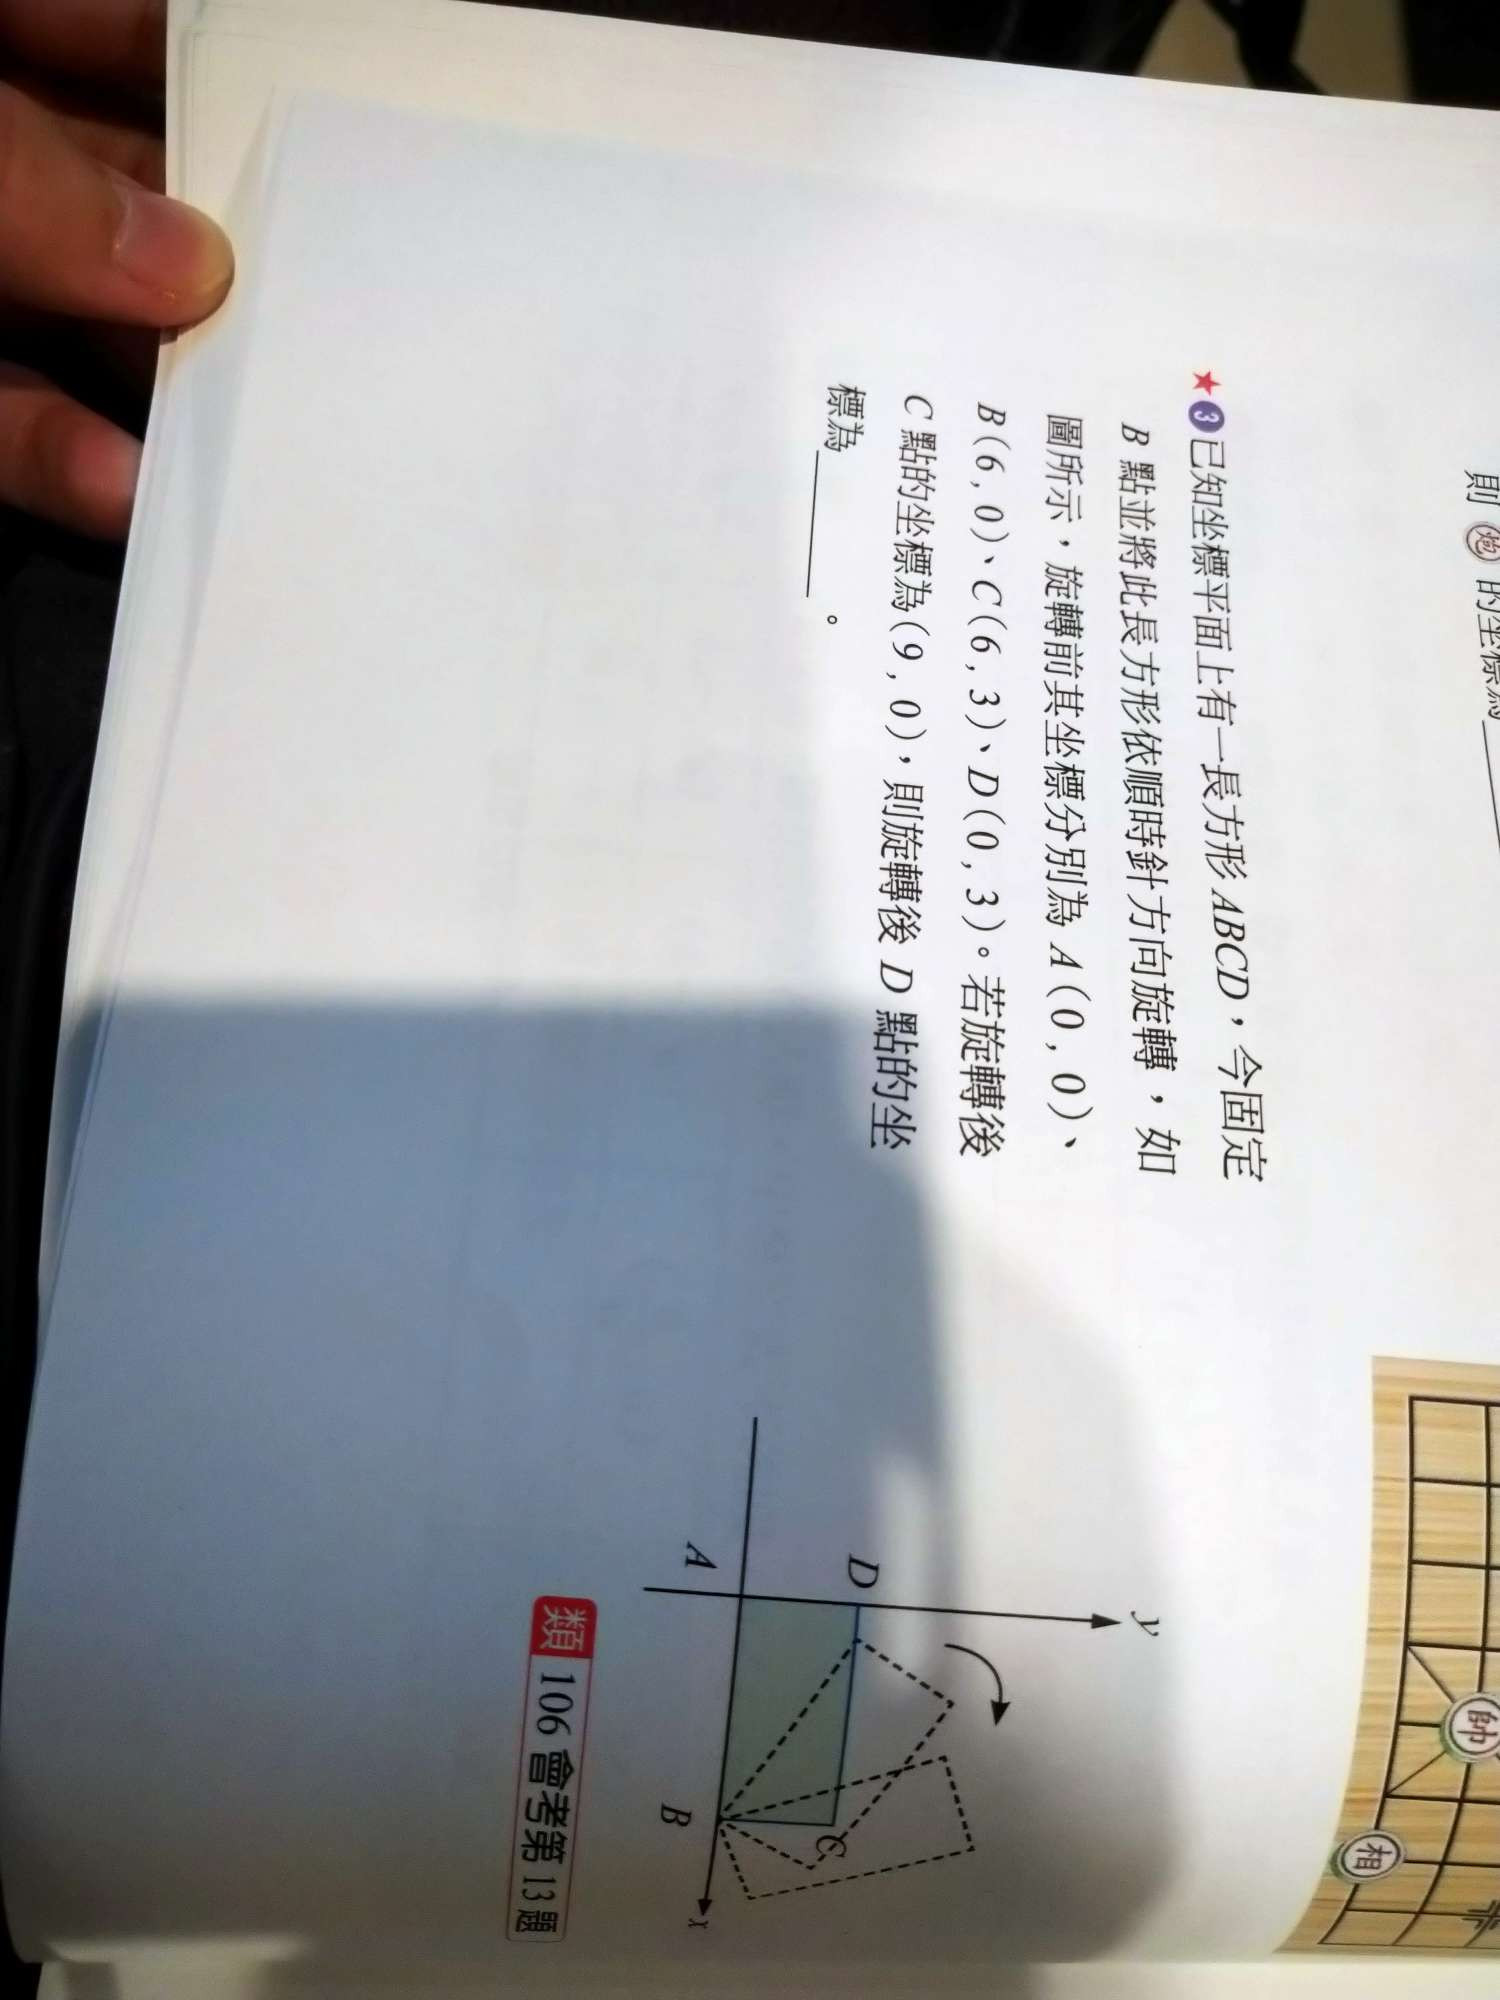 則 炮 的坐標為
帥
相
★3 已知坐標平面上有一長方形 ABCD，今固定
B 點並將此長方形依順時針方向旋轉，如
圖所示，旋轉前其坐標分別為 A(0, 0)、
B(6, 0)、C(6, 3)、D(0, 3)。若旋轉後
C 點的坐標為(9, 0)，則旋轉後 D 點的坐
標為______。
y
D
C
A
B
x
類 106 會考第 13 題